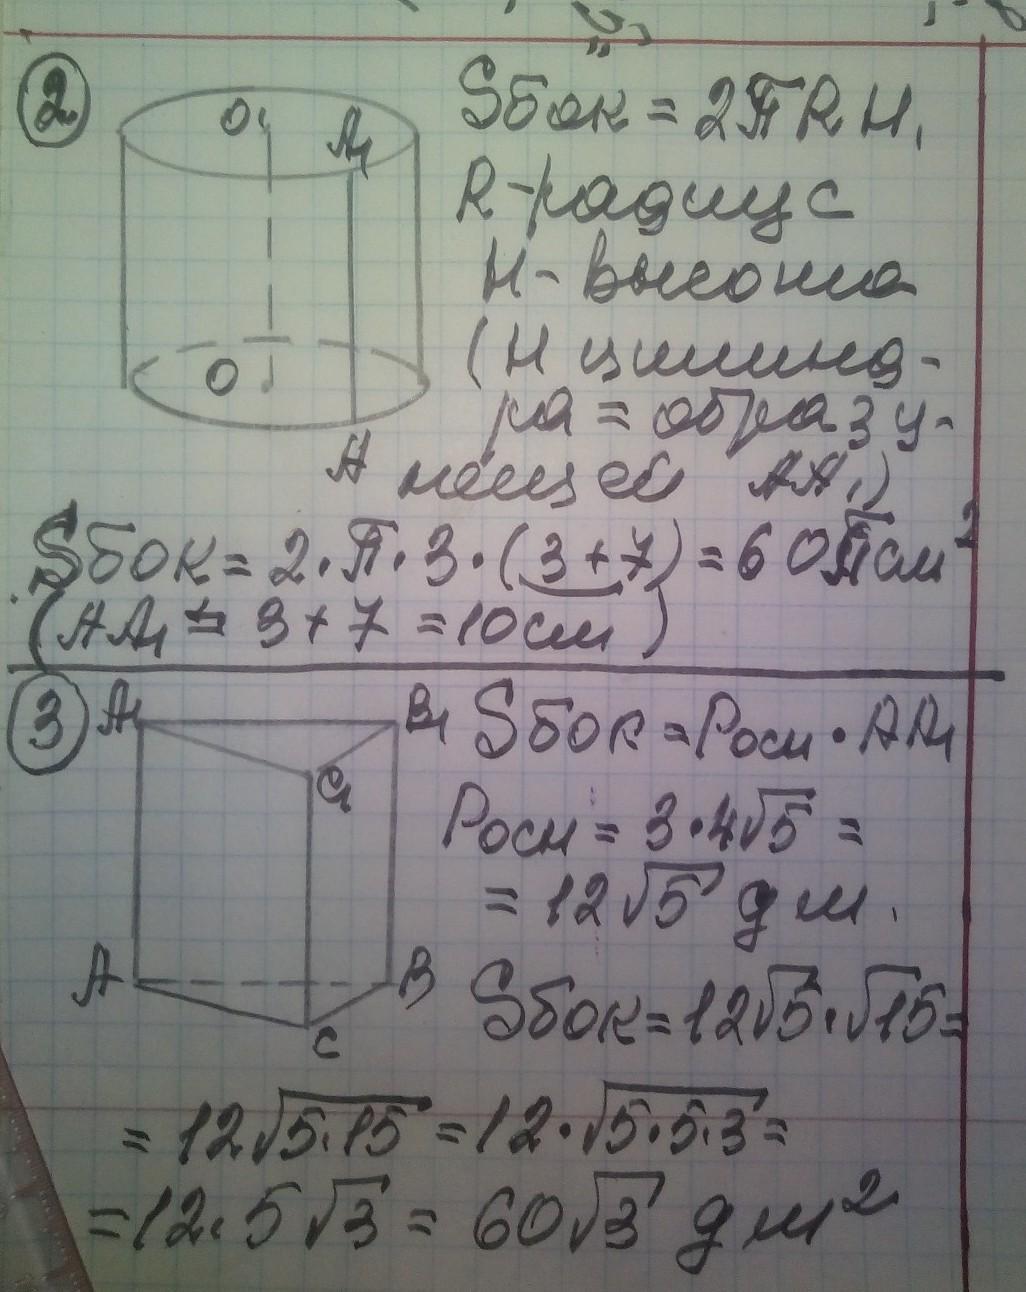 2
O₁
A₁
O
A
Sбок = 2πRH,
R - радиус
H - высота
(H цилинд-
ра = образу-
ющей AA₁)
Sбок = 2·π·3·(3+7) = 60π см²
(AA₁ = 3+7 = 10см)
3
A₁
B₁
C₁
A
B
C
Sбок = Pосн · AA₁
Pосн = 3·4√5 =
= 12√5 дм.
Sбок = 12√5·√15 =
= 12√5·15 = 12·√5·5·3 =
= 12·5√3 = 60√3 дм²